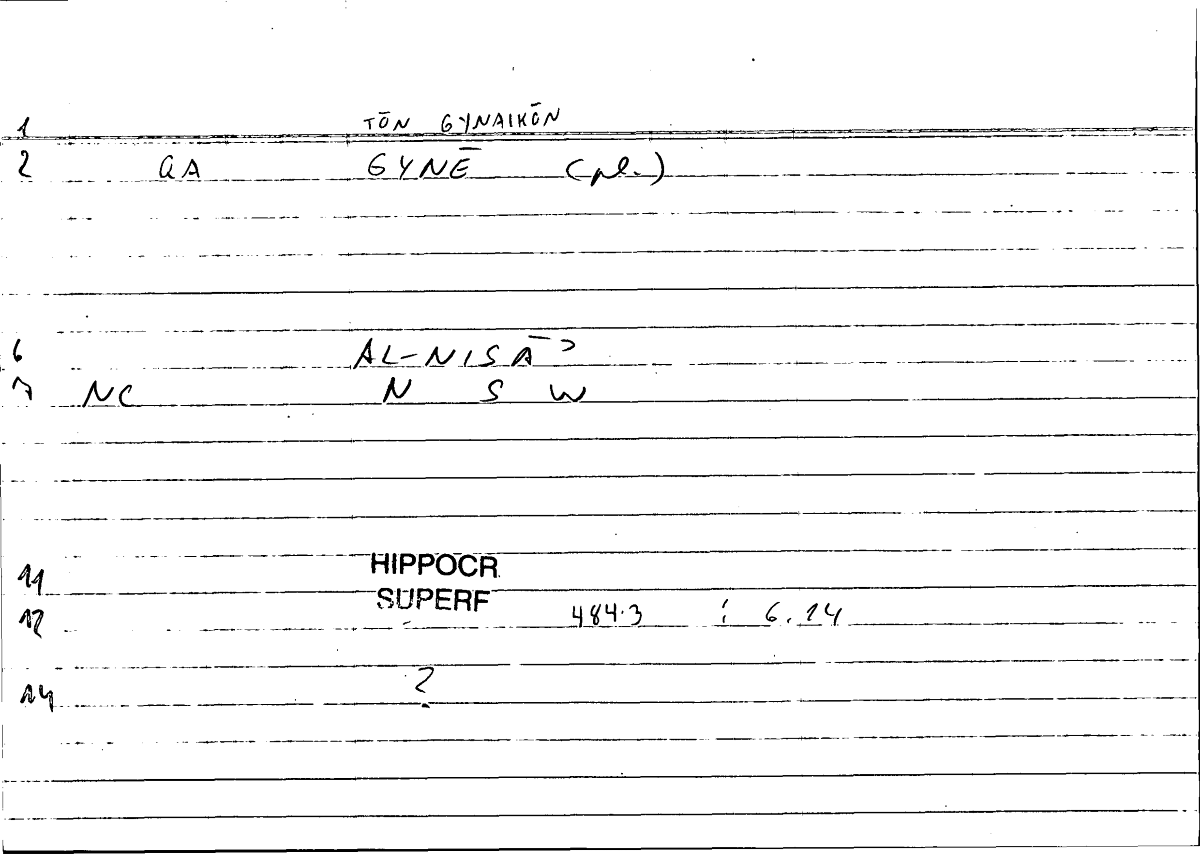 1 TŌN GYNAIKŌN
2 QA GYNĒ (pl.)
6 AL-NISĀʾ
7 NC N S W
11 HIPPOCR
SUPERF
12 484.3 : 6.14
14 ?